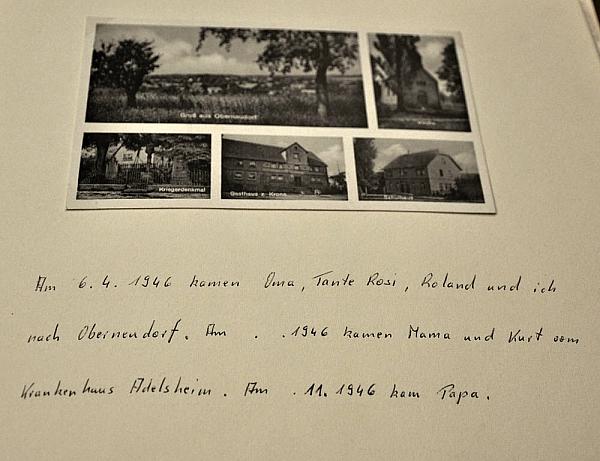 Gruß aus Obernaudorf
Kirche
Kriegerdenkmal
Gasthaus z. Krone
Schulhaus
Am 6.4.1946 kamen Oma, Tante Rosi, Roland und ich
nach Obernendorf. Am . .1946 kamen Mama und Kurt vom
Krankenhaus Adelsheim. Am .11.1946 kam Papa.